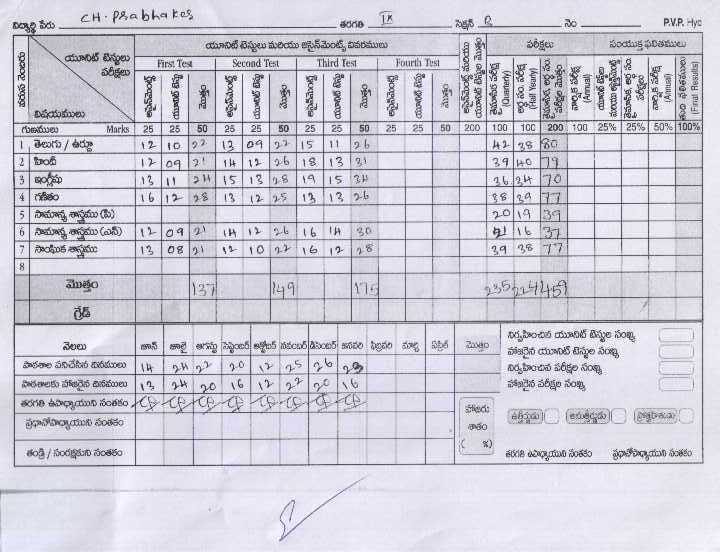 విద్యార్థి పేరు CH. Prabhakar తరగతి IX సెక్షన్ నెం P.V.P. Hyd
వరుస నెంబరు యూనిట్ టెస్టులు పరీక్షలు విషయములు యూనిట్ టెస్టులు మరియు అసైన్‌మెంట్స్ వివరములు అసైన్‌మెంట్స్ మరియు యూనిట్ టెస్టుల మొత్తం పరీక్షలు సంయుక్త ఫలితములు
First Test Second Test Third Test Fourth Test
అసైన్‌మెంట్స్ యూనిట్ టెస్టు మొత్తం అసైన్‌మెంట్స్ యూనిట్ టెస్టు మొత్తం అసైన్‌మెంట్స్ యూనిట్ టెస్టు మొత్తం అసైన్‌మెంట్స్ యూనిట్ టెస్టు మొత్తం త్రైమాసిక పరీక్ష (Quarterly) అర్ధ సం. పరీక్ష (Half Yearly) త్రైమాసిక అర్ధ సం. పరీక్షల మొత్తం వార్షిక పరీక్ష (Annual) యూనిట్ టెస్టులు మరియు అసైన్‌మెంట్స్ త్రైమాసిక అర్ధ సం. పరీక్షలు వార్షిక పరీక్ష (Annual) తుది ఫలితములు (Final Results)
గుణములు Marks 25 25 50 25 25 50 25 25 50 25 25 50 200 100 100 200 100 25% 25% 50% 100%
1 తెలుగు / ఉర్దూ 12 10 22 13 09 22 15 11 26 42 38 80
2 హిందీ 12 09 21 14 12 26 18 13 31 39 40 79
3 ఇంగ్లీషు 13 11 24 15 13 28 19 15 34 36 34 70
4 గణితం 16 12 28 13 12 25 13 13 26 38 39 77
5 సామాన్య శాస్త్రము (పి) 20 19 39
6 సామాన్య శాస్త్రము (ఎన్) 12 09 21 14 12 26 16 14 30 21 16 37
7 సాంఘిక శాస్త్రము 13 08 21 12 10 22 16 12 28 39 38 77
8
మొత్తం 137 149 175 235 224 459
గ్రేడ్
నెలలు జూన్ జూలై ఆగస్టు సెప్టెంబర్ అక్టోబర్ నవంబర్ డిసెంబర్ జనవరి ఫిబ్రవరి మార్చి ఏప్రిల్ మొత్తం
పాఠశాల పనిచేసిన దినములు 14 24 22 20 12 25 26 23
పాఠశాలకు హాజరైన దినములు 13 24 20 16 12 22 20 16
తరగతి ఉపాధ్యాయుని సంతకం
ప్రధానోపాధ్యాయుని సంతకం
తండ్రి / సంరక్షకుని సంతకం
హాజరు శాతం ( %)
నిర్వహించిన యూనిట్ టెస్టుల సంఖ్య
హాజరైన యూనిట్ టెస్టుల సంఖ్య
నిర్వహించిన పరీక్షల సంఖ్య
హాజరైన పరీక్షల సంఖ్య
ఉత్తీర్ణుడు అనుత్తీర్ణుడు ప్రోత్సాహితుడు
తరగతి ఉపాధ్యాయుని సంతకం ప్రధానోపాధ్యాయుని సంతకం